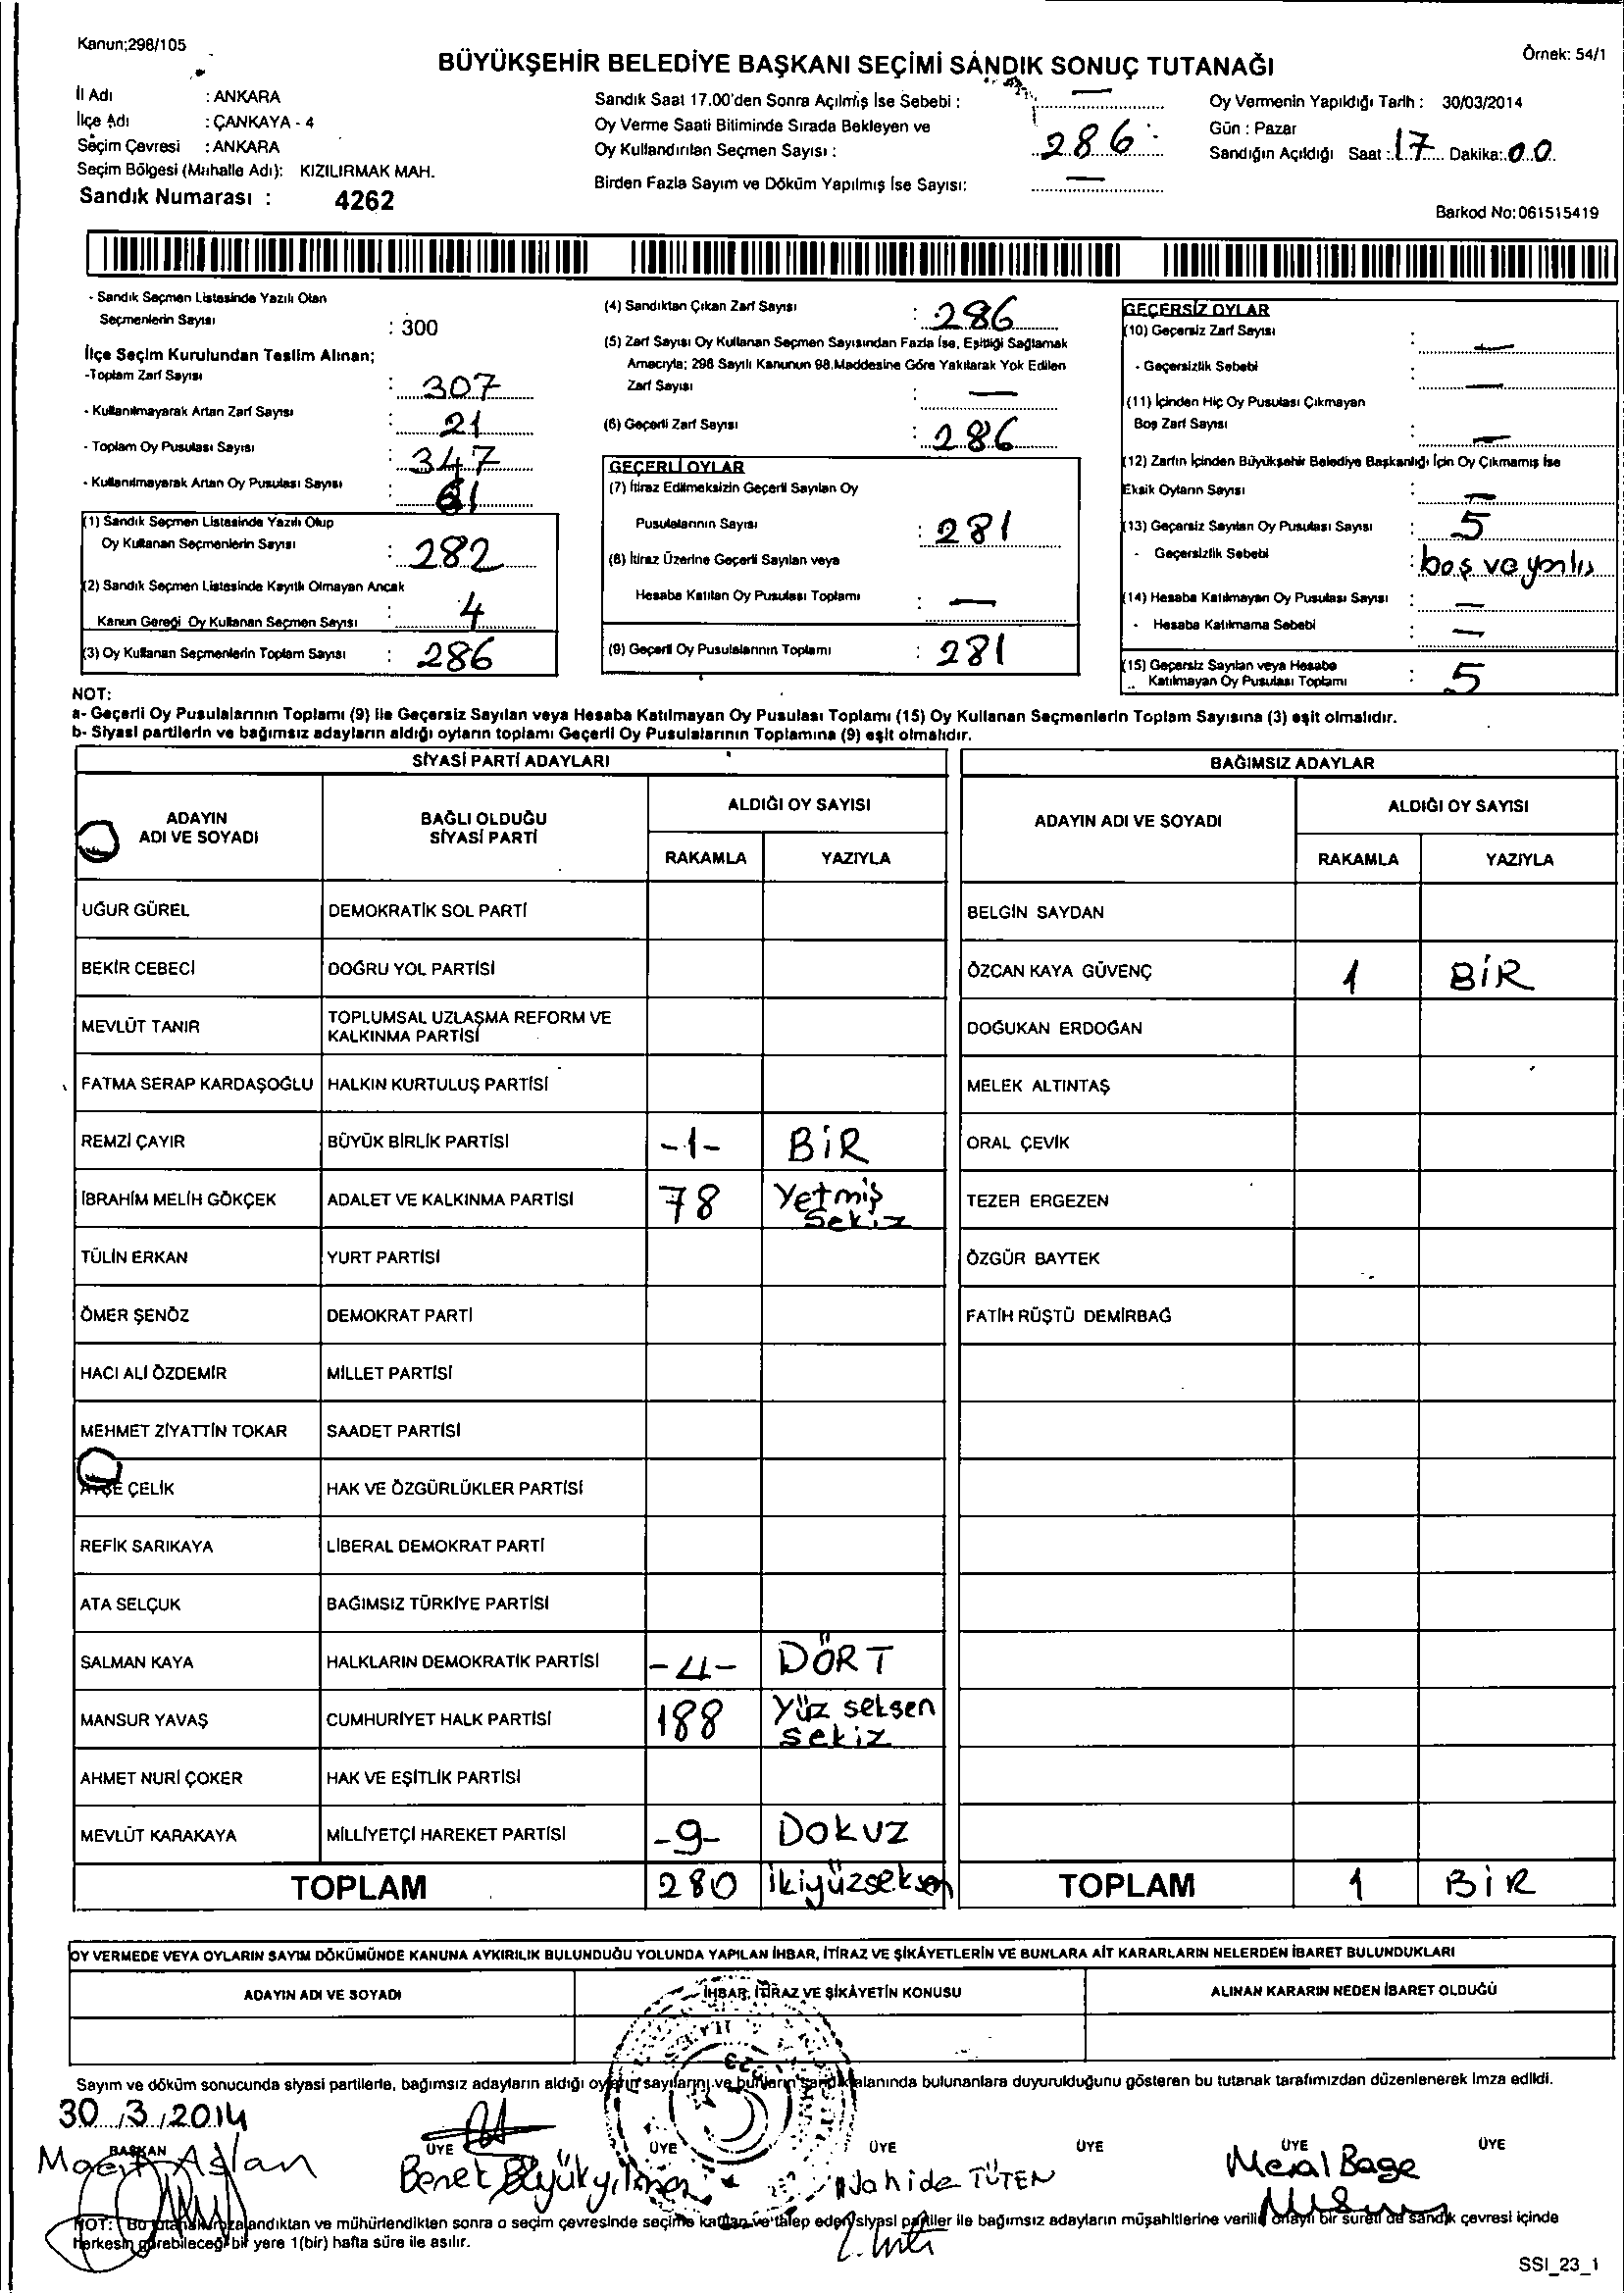 Kanun;298/105
Örnek: 54/1
BÜYÜKŞEHİR BELEDİYE BAŞKANI SEÇİMİ SANDIK SONUÇ TUTANAĞI
İl Adı : ANKARA
İlçe Adı : ÇANKAYA - 4
Seçim Çevresi : ANKARA
Seçim Bölgesi (Mahalle Adı): KIZILIRMAK MAH.
Sandık Numarası : 4262
Sandık Saat 17.00'den Sonra Açılmış İse Sebebi : —
Oy Verme Saati Bitiminde Sırada Bekleyen ve
Oy Kullandırılan Seçmen Sayısı : 286
Birden Fazla Sayım ve Döküm Yapılmış İse Sayısı: —
Oy Vermenin Yapıldığı Tarih : 30/03/2014
Gün : Pazar
Sandığın Açıldığı Saat : 17 Dakika: 00
Barkod No:061515419
- Sandık Seçmen Listesinde Yazılı Olan
Seçmenlerin Sayısı : 300
İlçe Seçim Kurulundan Teslim Alınan;
-Toplam Zarf Sayısı : 307
- Kullanılmayarak Artan Zarf Sayısı : 21
- Toplam Oy Pusulası Sayısı : 347
- Kullanılmayarak Artan Oy Pusulası Sayısı : 61
(1) Sandık Seçmen Listesinde Yazılı Olup
Oy Kullanan Seçmenlerin Sayısı : 282
(2) Sandık Seçmen Listesinde Kayıtlı Olmayan Ancak
Kanun Gereği Oy Kullanan Seçmen Sayısı : 4
(3) Oy Kullanan Seçmenlerin Toplam Sayısı : 286
(4) Sandıktan Çıkan Zarf Sayısı : 286
(5) Zarf Sayısı Oy Kullanan Seçmen Sayısından Fazla İse, Eşitliği Sağlamak
Amacıyla; 298 Sayılı Kanunun 98.Maddesine Göre Yakılarak Yok Edilen
Zarf Sayısı : —
(6) Geçerli Zarf Sayısı : 286
GEÇERLİ OYLAR
(7) İtiraz Edilmeksizin Geçerli Sayılan Oy
Pusulalarının Sayısı : 281
(8) İtiraz Üzerine Geçerli Sayılan veya
Hesaba Katılan Oy Pusulası Toplamı : —
(9) Geçerli Oy Pusulalarının Toplamı : 281
GEÇERSİZ OYLAR
(10) Geçersiz Zarf Sayısı : —
- Geçersizlik Sebebi : —
(11) İçinden Hiç Oy Pusulası Çıkmayan
Boş Zarf Sayısı : —
(12) Zarfın İçinden Büyükşehir Belediye Başkanlığı İçin Oy Çıkmamış İse
Eksik Oyların Sayısı : —
(13) Geçersiz Sayılan Oy Pusulası Sayısı : 5
- Geçersizlik Sebebi : boş ve yanlış
(14) Hesaba Katılmayan Oy Pusulası Sayısı : —
- Hesaba Katılmama Sebebi : —
(15) Geçersiz Sayılan veya Hesaba
Katılmayan Oy Pusulası Toplamı : 5
NOT:
a- Geçerli Oy Pusulalarının Toplamı (9) ile Geçersiz Sayılan veya Hesaba Katılmayan Oy Pusulası Toplamı (15) Oy Kullanan Seçmenlerin Toplam Sayısına (3) eşit olmalıdır.
b- Siyasi partilerin ve bağımsız adayların aldığı oyların toplamı Geçerli Oy Pusulalarının Toplamına (9) eşit olmalıdır.
SİYASİ PARTİ ADAYLARI
ADAYIN
ADI VE SOYADI
BAĞLI OLDUĞU
SİYASİ PARTİ
ALDIĞI OY SAYISI
RAKAMLA YAZIYLA
UĞUR GÜREL DEMOKRATİK SOL PARTİ
BEKİR CEBECİ DOĞRU YOL PARTİSİ
MEVLÜT TANIR TOPLUMSAL UZLAŞMA REFORM VE
KALKINMA PARTİSİ
FATMA SERAP KARDAŞOĞLU HALKIN KURTULUŞ PARTİSİ
REMZİ ÇAYIR BÜYÜK BİRLİK PARTİSİ -1- BİR
İBRAHİM MELİH GÖKÇEK ADALET VE KALKINMA PARTİSİ 78 Yetmiş
Sekiz
TÜLİN ERKAN YURT PARTİSİ
ÖMER ŞENÖZ DEMOKRAT PARTİ
HACI ALİ ÖZDEMİR MİLLET PARTİSİ
MEHMET ZİYATTİN TOKAR SAADET PARTİSİ
AYŞE ÇELİK HAK VE ÖZGÜRLÜKLER PARTİSİ
REFİK SARIKAYA LİBERAL DEMOKRAT PARTİ
ATA SELÇUK BAĞIMSIZ TÜRKİYE PARTİSİ
SALMAN KAYA HALKLARIN DEMOKRATİK PARTİSİ -4- DÖRT
MANSUR YAVAŞ CUMHURİYET HALK PARTİSİ 188 Yüz seksen
sekiz
AHMET NURİ ÇOKER HAK VE EŞİTLİK PARTİSİ
MEVLÜT KARAKAYA MİLLİYETÇİ HAREKET PARTİSİ -9- DOKUZ
TOPLAM 280 ikiyüzseksen
BAĞIMSIZ ADAYLAR
ADAYIN ADI VE SOYADI
ALDIĞI OY SAYISI
RAKAMLA YAZIYLA
BELGİN SAYDAN
ÖZCAN KAYA GÜVENÇ 1 BİR
DOĞUKAN ERDOĞAN
MELEK ALTINTAŞ
ORAL ÇEVİK
TEZER ERGEZEN
ÖZGÜR BAYTEK
FATİH RÜŞTÜ DEMİRBAĞ
TOPLAM 1 BİR
OY VERMEDE VEYA OYLARIN SAYIM DÖKÜMÜNDE KANUNA AYKIRILIK BULUNDUĞU YOLUNDA YAPILAN İHBAR, İTİRAZ VE ŞİKÂYETLERİN VE BUNLARA AİT KARARLARIN NELERDEN İBARET BULUNDUKLARI
ADAYIN ADI VE SOYADI İHBAR, İTİRAZ VE ŞİKÂYETİN KONUSU ALINAN KARARIN NEDEN İBARET OLDUĞU
Sayım ve döküm sonucunda siyasi partilerle, bağımsız adayların aldığı oyların sayılarını ve bunların sandık alanında bulunanlara duyurulduğunu gösteren bu tutanak tarafımızdan düzenlenerek imza edildi.
30 / 3 / 2014
BAŞKAN ÜYE ÜYE ÜYE ÜYE ÜYE ÜYE
Aslan Büyükyılmaz Nahide TÜTEN Meral Bage
NOT: Bu tutanak imzalandıktan ve mühürlendikten sonra o seçim çevresinde seçime katılan ve talep eden siyasi partiler ile bağımsız adayların müşahitlerine verilir onaylı bir sureti de sandık çevresi içinde
herkesin görebileceği bir yere 1(bir) hafta süre ile asılır.
SSI_23_1